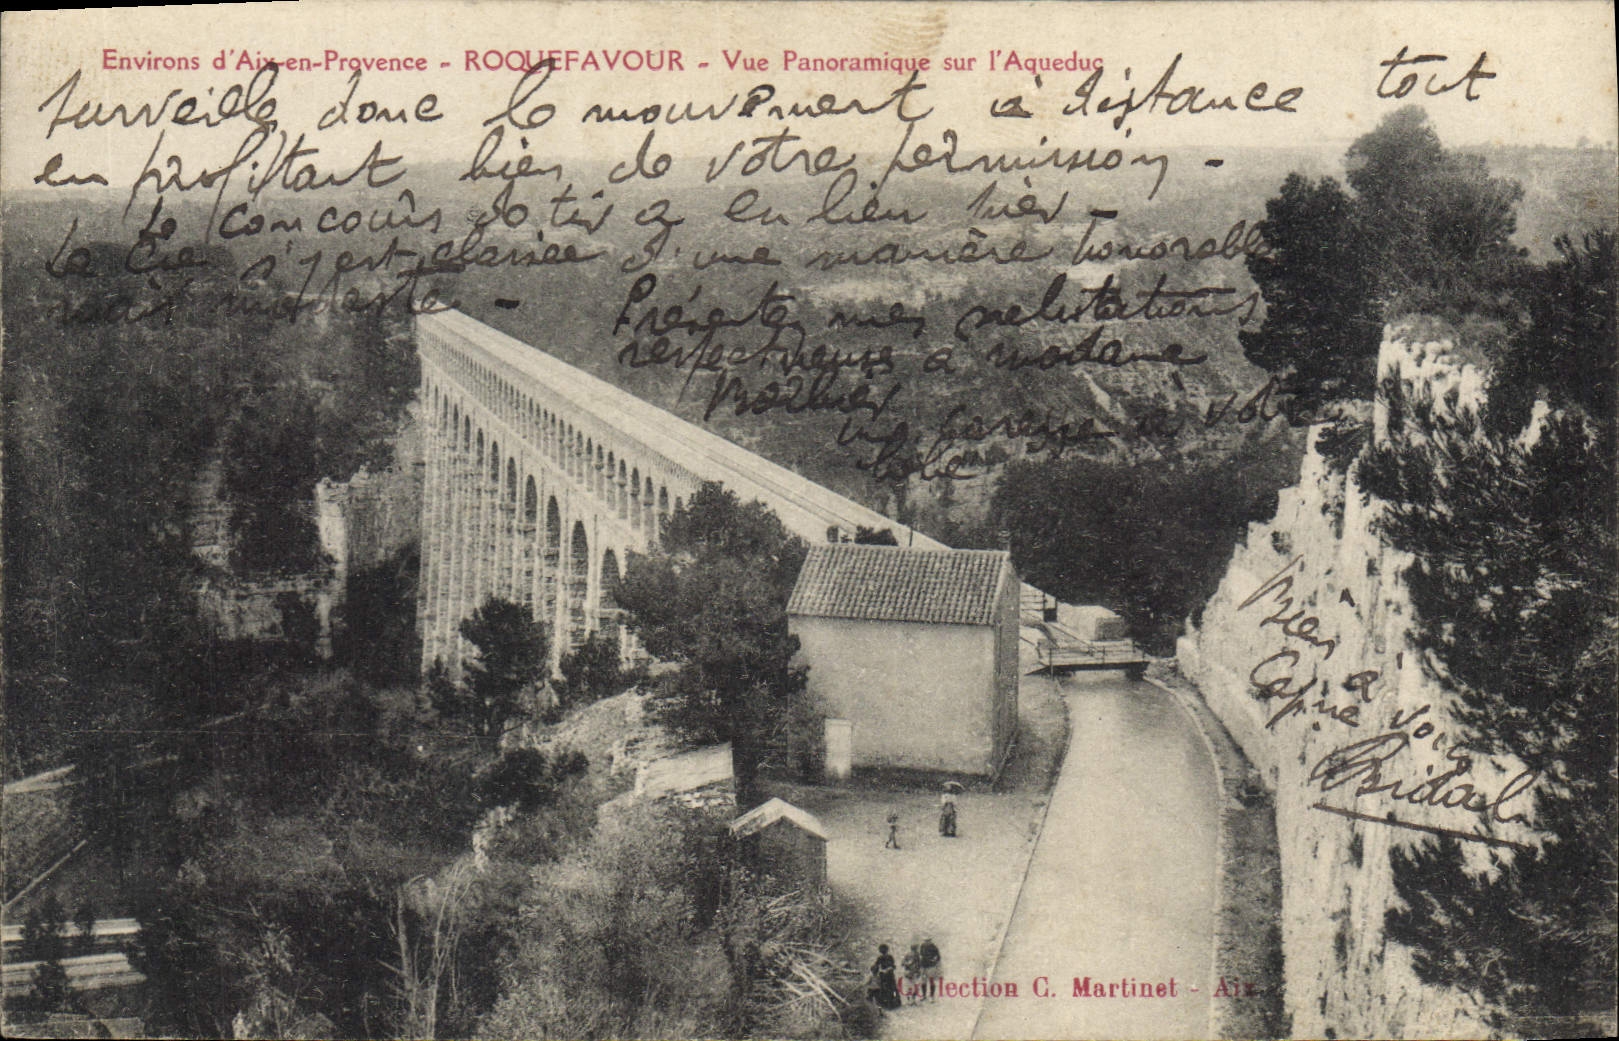 Environs d'Aix-en-Provence - ROQUEFAVOUR - Vue Panoramique sur l'Aqueduc
surveille donc le mouvement à distance tout
en profitant bien de votre permission -
Le concours de tir a eu lieu hier -
La Cie s'est classée d'une manière honorable
mais modeste -
Présentez mes salutations
respectueuse à madame
une caresse à votre
bébé
Bien à vous
Bidal
Collection C. Martinet - Aix